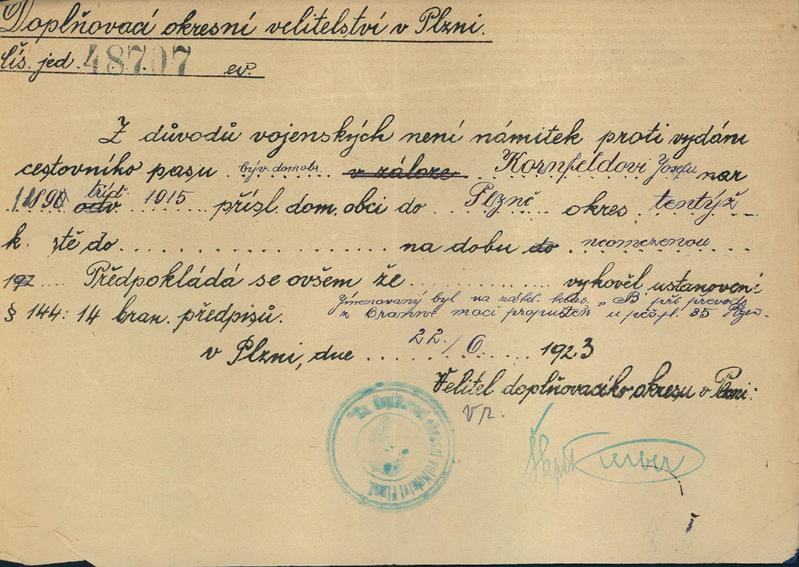 Doplňovací okresní velitelství v Plzni.
Čís. jed. 48707 ev.
Z důvodů vojenských není námitek proti vydání
cestovního pasu býv. domobr. v záloze Kornfeldovi Josefu nar
1890 odv tříd. 1915 přísl. dom. obci do Plzně okres tentýž
k. stě do na dobu do neomezenou
192 Předpokládá se ovšem že vyhověl ustanovení
§ 144: 14 bran. předpisů. Jmenovaný byl na zákl. klas. "B" při převodu
z branné moci propuštěn u pěš. pl. 35 Plzeň.
v Plzni, dne 22./6. 1923
Velitel doplňovacího okresu v Plzni:
v z.
Škpt.